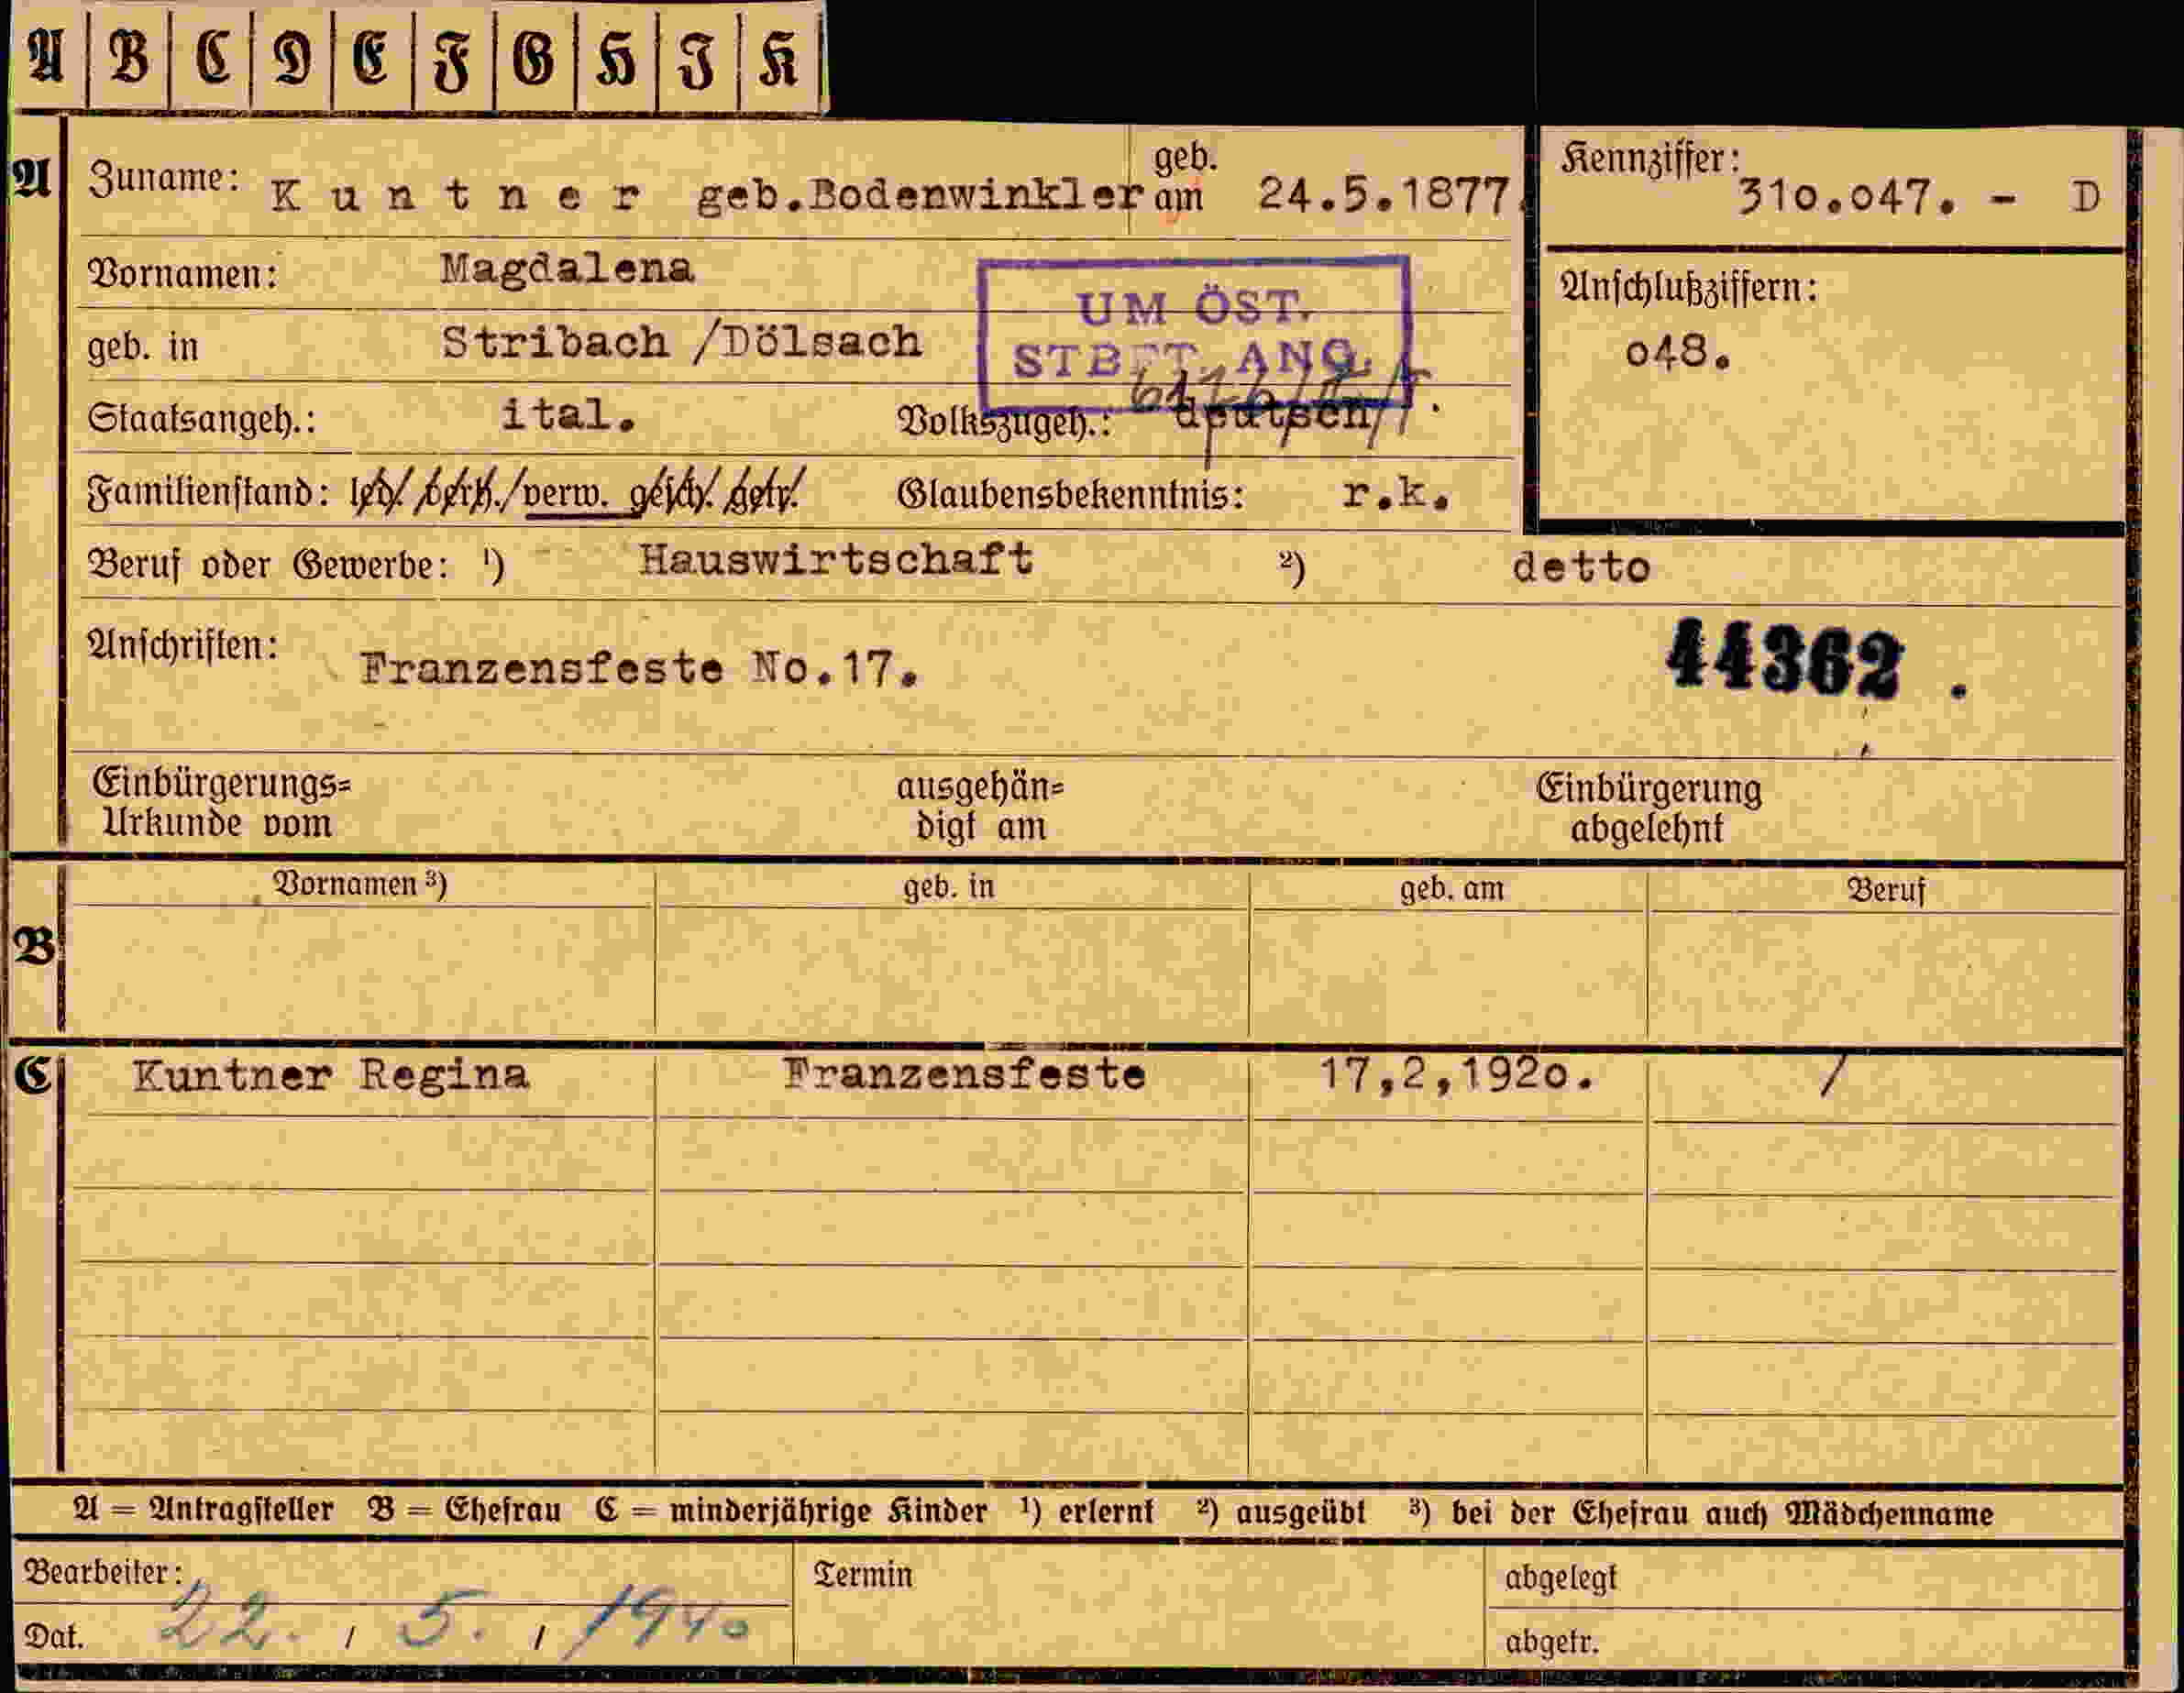 A B C D E F G H I K
A Zuname: Kuntner geb.Bodenwinkler geb. am 24.5.1877.
Kennziffer: 310.047. - D
Vornamen: Magdalena
UM ÖST.
Anschlußziffern:
geb. in Stribach /Dölsach
STBET. ANG.
048.
Staatsangeh.: ital. Volkszugeh.: deutsch
Familienstand: led. verh. verw. gesch. getr. Glaubensbekenntnis: r.k.
Beruf oder Gewerbe: ¹) Hauswirtschaft ²) detto
Anschriften: Franzensfeste No.17.
44362 .
Einbürgerungs=
Urkunde vom
ausgehän=
digt am
Einbürgerung
abgelehnt
Vornamen ³) geb. in geb. am Beruf
B
C Kuntner Regina Franzensfeste 17,2,1920. /
A = Antragsteller B = Ehefrau C = minderjährige Kinder ¹) erlernt ²) ausgeübt ³) bei der Ehefrau auch Mädchenname
Bearbeiter: Termin abgelegt
Dat. 22. / 5. / 1940 abgetr.